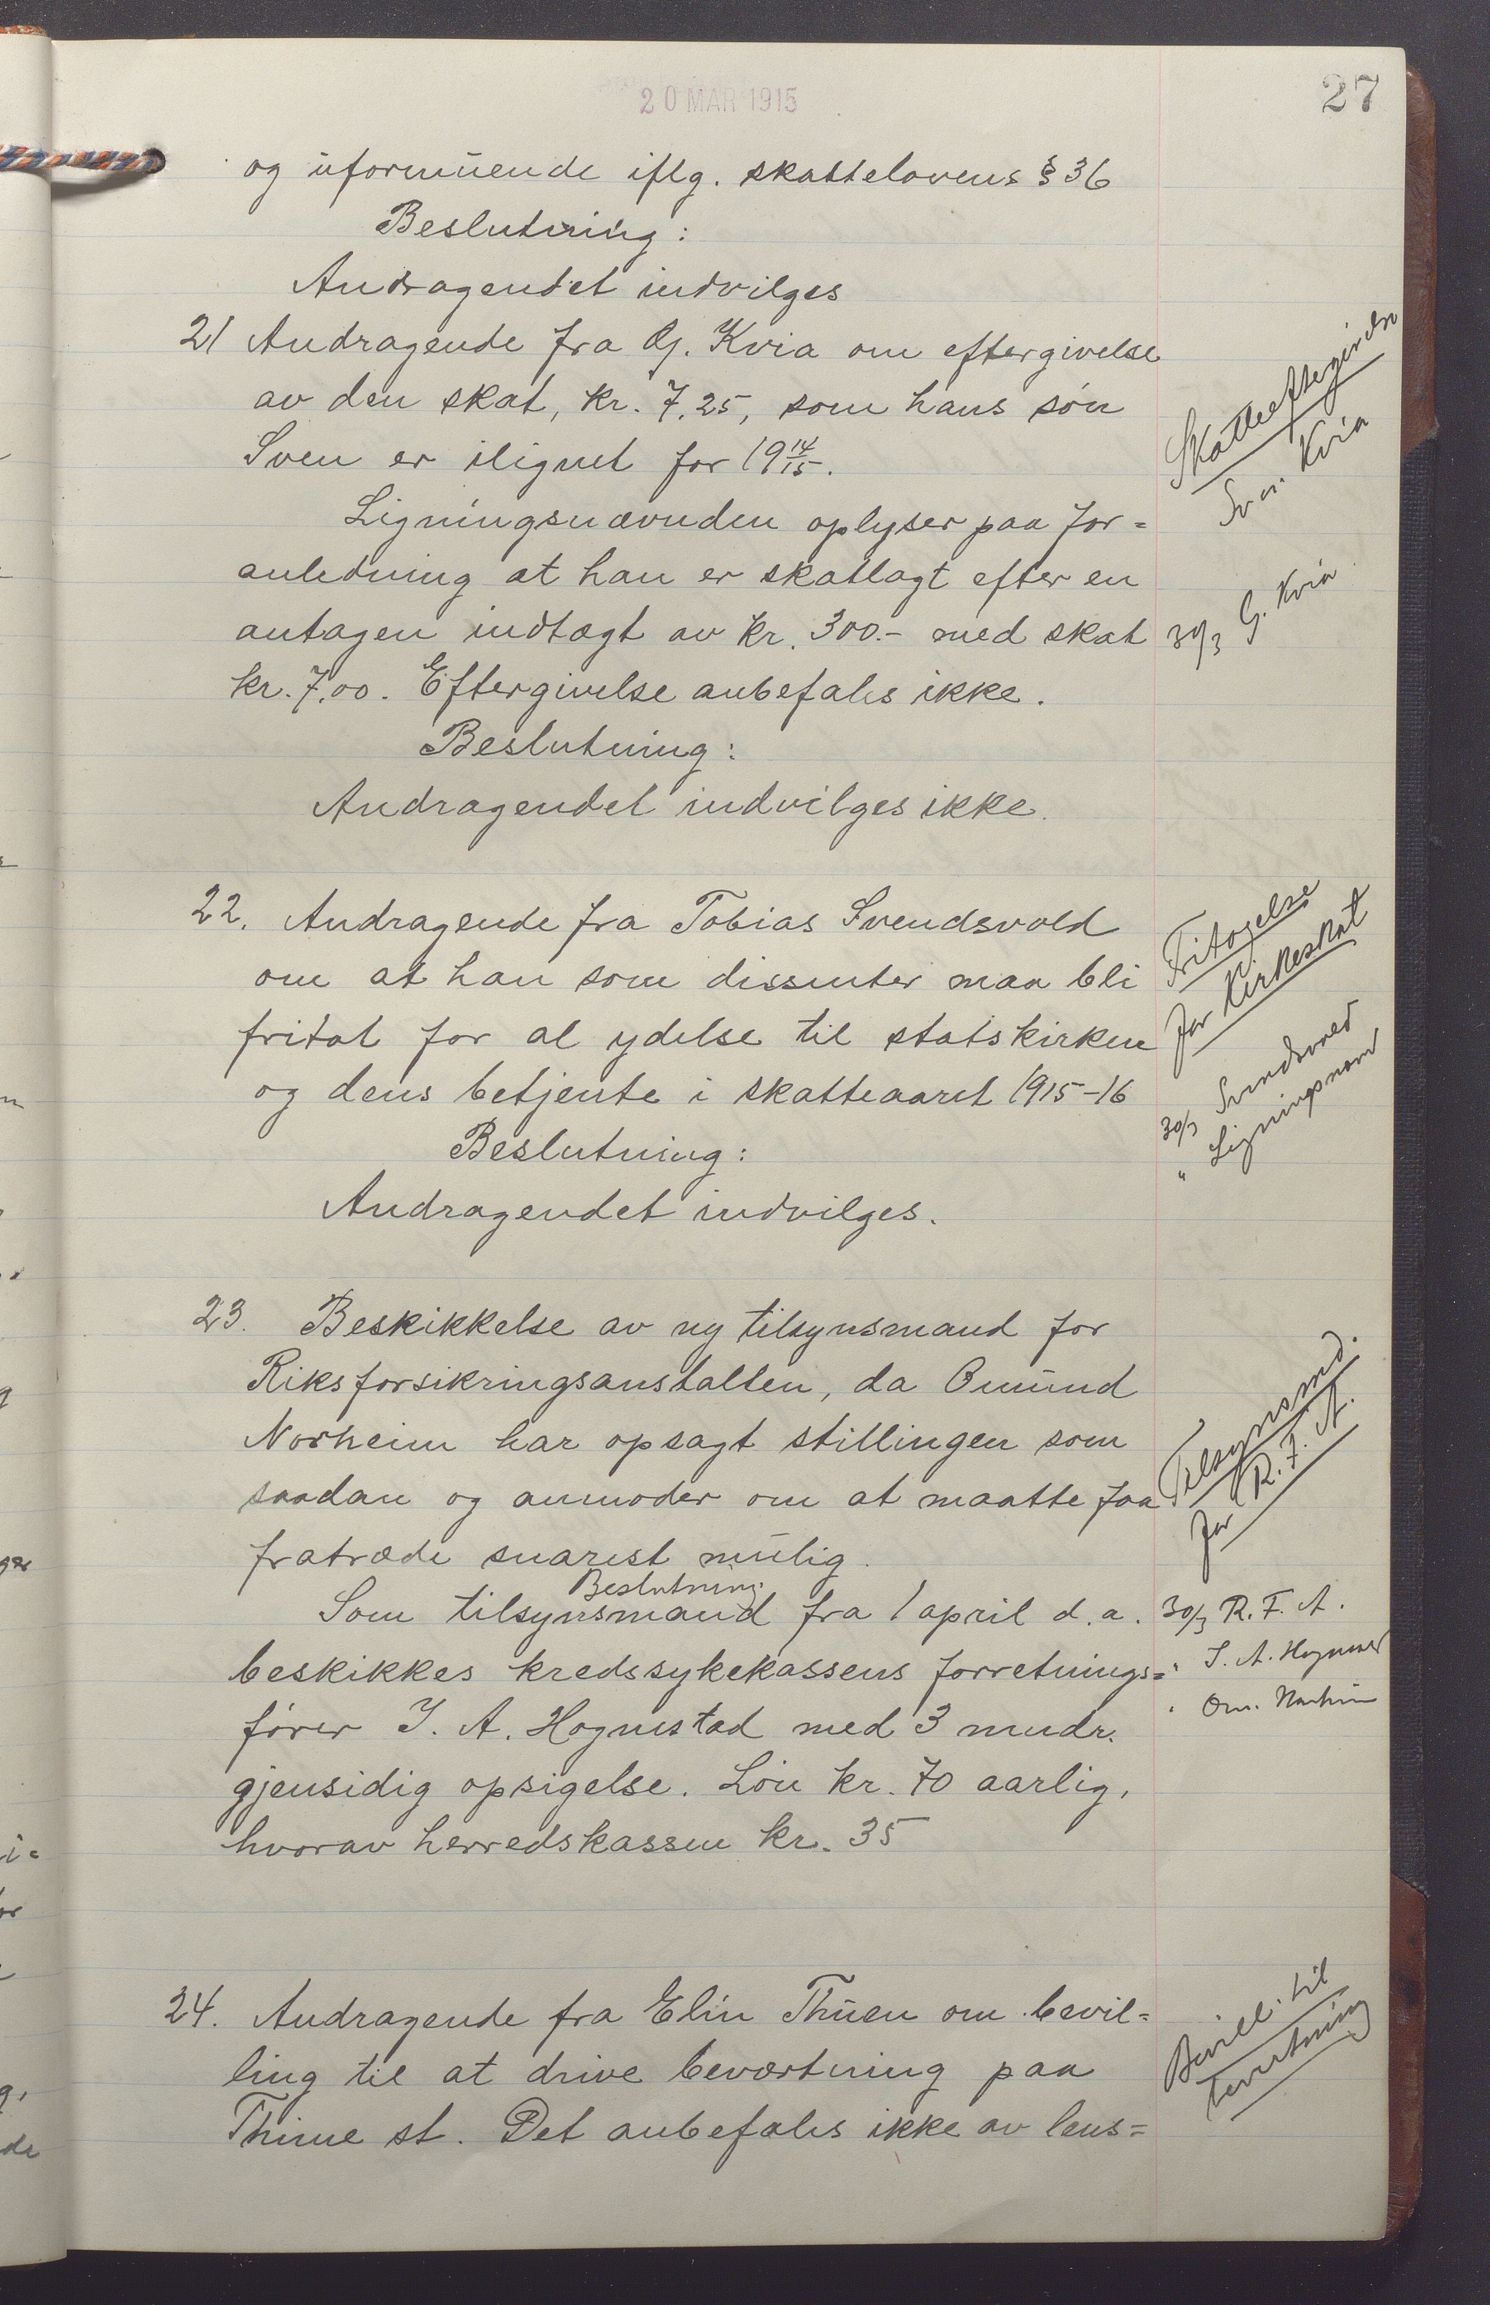 27
20 MAR 1915
og uformuende iflg. skattelovens § 36
Beslutning:
Andragendet indvilges
21 Andragende fra Gj. Kvia om eftergivelse
av den skat, kr. 7,25, som hans søn
Sven er ilignet for 19 14/15.
Skatteeftergivelse
Sven Kvia
Ligningsnævnden oplyser paa for=
anledning at han er skatlagt efter en
antagen indtægt av kr. 300.- med skat
30/3 G. Kvia
kr. 7,00. Eftergivelse anbefales ikke.
Beslutning:
Andragendet indvilges ikke.
22. Andragende fra Tobias Svendsvold
om at han som dissenter maa bli
fritat for al ydelse til statskirken
og dens betjente i skatteaaret 1915-16
Fritagelse
for Kirkeskat
30/3 Svendsvold
" Ligningsnævnd
Beslutning:
Andragendet indvilges.
23. Beskikkelse av ny tilsynsmand for
Riksforsikringsanstalten, da Omund
Norheim har opsagt stillingen som
saadan og anmoder om at maatte faa
fratræde snarest mulig.
Tilsynsmd.
for R. F. A.
Beslutning:
Som tilsynsmand fra 1 april d.a.
beskikkes kredssykekassens forretnings=
fører J. A. Hognestad med 3 mndr.
gjensidig opsigelse. Løn kr. 70 aarlig,
hvorav herredskassen kr. 35
30/3 R. F. A.
" J. A. Hognestad
" Om. Norheim
24. Andragende fra Elin Thuen om bevil=
ling til at drive beværtning paa
Thime st. Det anbefales ikke av lens=
Bevill. til
bevertning